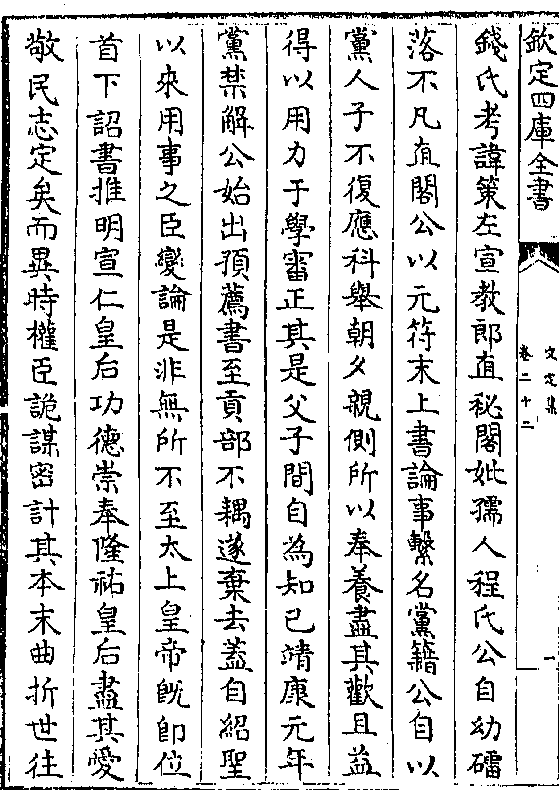 欽定四庫全書
文定集
卷二十二
一
錢氏考諱䇿左宣教郎直秘閣妣孺人程氏公自幼礌
落不凡直閣公以元符末上書論事繫名黨籍公自以
黨人子不復應科舉朝夕親側所以奉養盡其歡且益
得以用力于學審正其是父子間自為知已靖康元年
黨禁解公始出預薦書至貢部不耦遂棄去蓋自紹聖
以來用事之臣變論是非無所不至太上皇帝既即位
首下詔書推明宣仁皇后功德崇奉隆祐皇后盡其愛
敬民志定矣而異時權臣詭謀密計其本末曲折世往